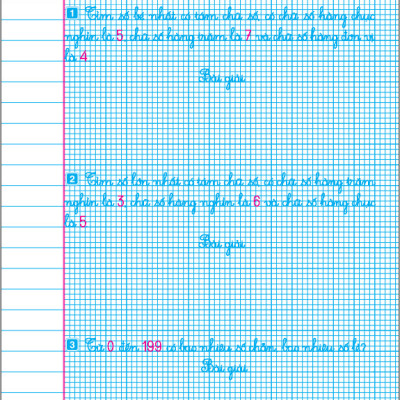 1 Tìm số bé nhất có tám chữ số, có chữ số hàng chục
nghìn là 5, chữ số hàng trăm là 7 và chữ số hàng đơn vị
là 4.
Bài giải
2 Tìm số lớn nhất có tám chữ số, có chữ số hàng trăm
nghìn là 3, chữ số hàng nghìn là 6 và chữ số hàng chục
là 5.
Bài giải
3 Từ 0 đến 199 có bao nhiêu số chẵn, bao nhiêu số lẻ?
Bài giải